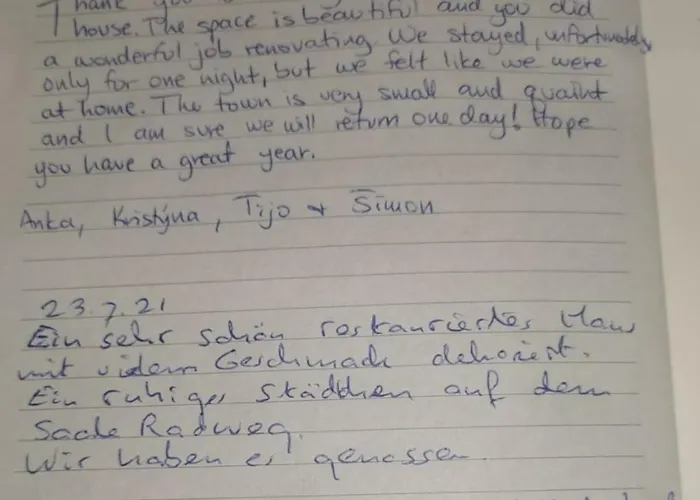 Thank you
house. The space is beautiful and you did
a wonderful job renovating. We stayed, unfortunately
only for one night, but we felt like we were
at home. The town is very small and quaint
and I am sure we will return one day! Hope
you have a great year.
Anka, Kristýna, Tijo + Šimon
23.7.21
Ein sehr schön restauriertes Haus
mit vielem Geschmack dekoriert.
Ein ruhiges Städtchen auf dem
Saale Radweg.
Wir haben es genossen.